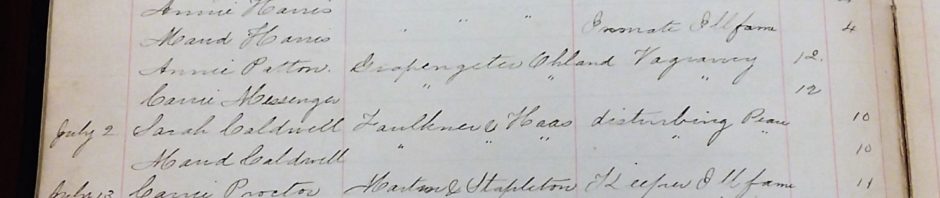 Annie Harris " " "
Maud Harris " " " Inmate Ill fame 4
Annie Patton. Grapengeter Ohland Vagrancy 12.
Carrie Messenger " " " 12
July 2 Sarah Caldwell Faulkner & Haas disturbing Peace 10
Maud Caldwell " " " " 10
Carrie Proctor Martin & Stapleton Keeper Ill fame 11